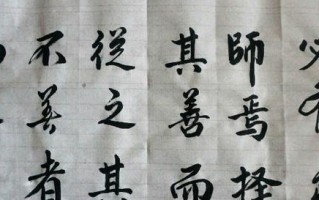 師焉择
其善而
從之其
不善者